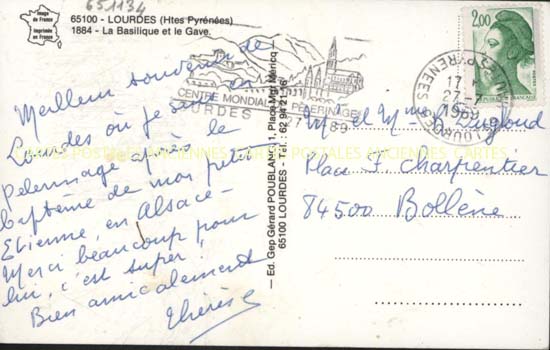 651134
Image
de France
Imprimée
en France
65100 - LOURDES (Htes Pyrénées)
1884 - La Basilique et le Gave.
Meilleur souvenir de
Lourdes où je suis en
Pèlerinage après le
baptême de mon petit
Etienne, en Alsace -
Merci beaucoup pour
lui, c'est super !
Bien amicalement
Thérèse
Ed. Gep Gérard POUBLANC, 1, Place Mgr Méricq
65100 LOURDES - Tél. 62 94 21 16
CENTRE MONDIAL PÈLERINAGE
LOURDES
2,00
PYRENEES
17
27-7
1989
LOURDES
M. et Mme
Place J. Charpentier
84500 Bollène
CARTES POSTALES ANCIENNES CARTES POSTALES ANCIENNES CARTES